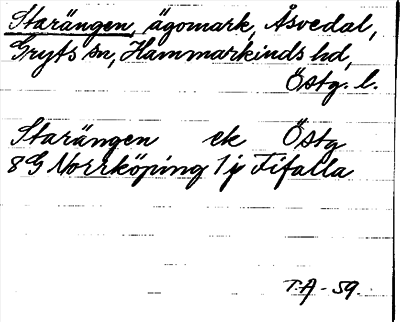 Starängen, ägomark, Åsvedal,
Gryts sn, Hammarkinds hd,
Östg. l.
Starängen ek Östg
8G Norrköping 1j Fifalla
T.A - 59.